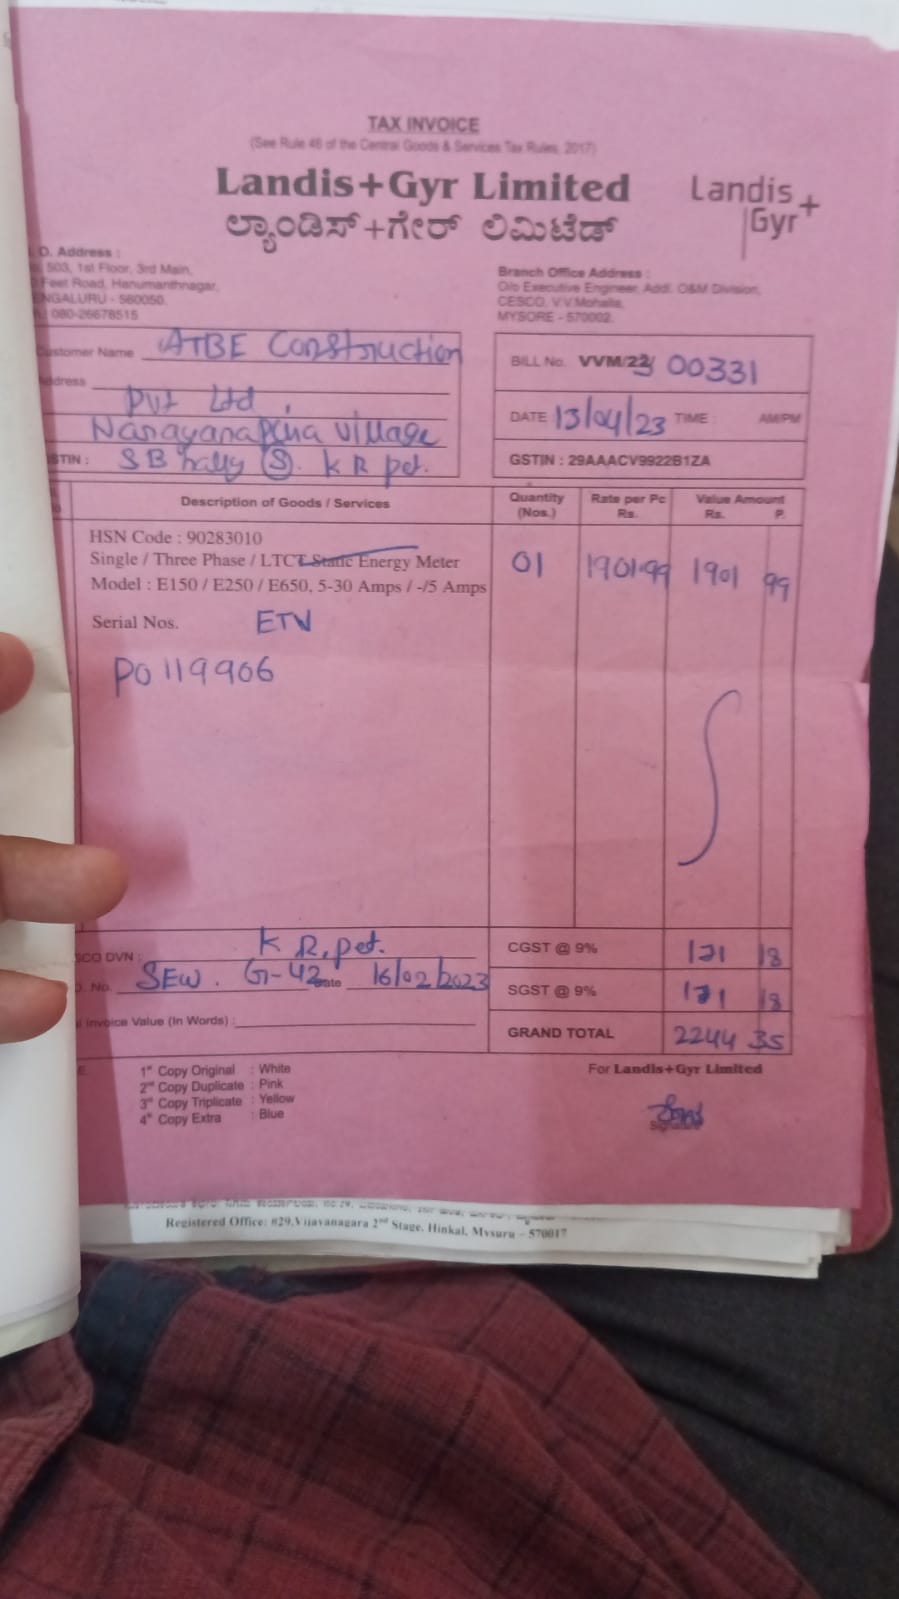 TAX INVOICE
(See Rule 46 of the Central Goods & Services Tax Rules, 2017)
Landis+Gyr Limited
ಲ್ಯಾಂಡಿಸ್+ಗೇರ್ ಲಿಮಿಟೆಡ್
Landis+
Gyr
O. Address :
503, 1st Floor, 3rd Main,
Feet Road, Hanumanthnagar,
NGALURU - 560050.
080-26678515
Branch Office Address :
O/o Executive Engineer, Addl. O&M Division,
CESCO, V.V.Mohalla,
MYSORE - 570002.
Customer Name ATBE Construction
Address
Pvt Ltd,
Narayanapura village
STIN : SB hally (S). K R pet.
BILL No. VVM/23/ 00331
DATE 13/04/23 TIME : AM/PM
GSTIN : 29AAACV9922B1ZA
Description of Goods / Services
Quantity (Nos.)
Rate per Pc Rs.
Value Amount Rs. P.
HSN Code : 90283010
Single / Three Phase / LTCT Static Energy Meter
Model : E150 / E250 / E650, 5-30 Amps / -/5 Amps
01 1901.99 1901 99
Serial Nos. ETV
PO119906
SCO DVN : K R. pet.
No. SEW. G-42 Date 16/02/2023
Invoice Value (In Words) :
CGST @ 9% 171 18
SGST @ 9% 171 18
GRAND TOTAL 2244 35
1st Copy Original : White
2nd Copy Duplicate : Pink
3rd Copy Triplicate : Yellow
4th Copy Extra : Blue
For Landis+Gyr Limited
Signature
Registered Office: #29,Vijayanagara 2nd Stage, Hinkal, Mysuru – 570017